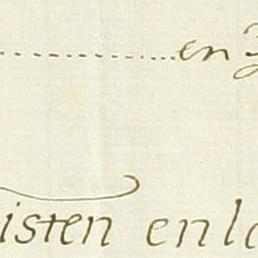 en
isten enla